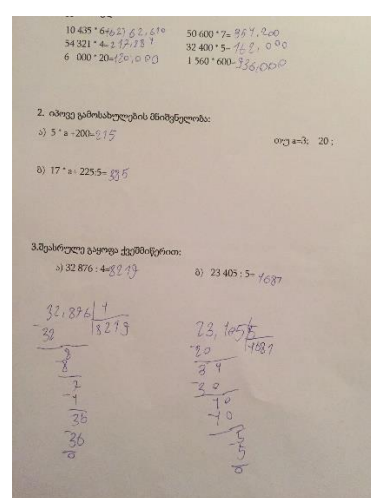 10 435 *6=62,610
50 600 *7=354,200
54 321 *4=217,284
32 400 *5=162,000
6 000 *20=120,000
1 560 *600=936,000
2. იპოვე გამოსახულების მნიშვნელობა:
ა) 5 * a +200=215
თუ a=3; 20 ;
ბ) 17 * a+ 225:5=
3.შეასრულე გაყოფა ქვეშმიწერით:
ა) 32 876 : 4=8219
ბ) 23 405 : 5= 4681
32,876 4
32 8219
8
8
7
4
36
36
0
23,405 5
20 4681
34
30
40
40
5
5
0